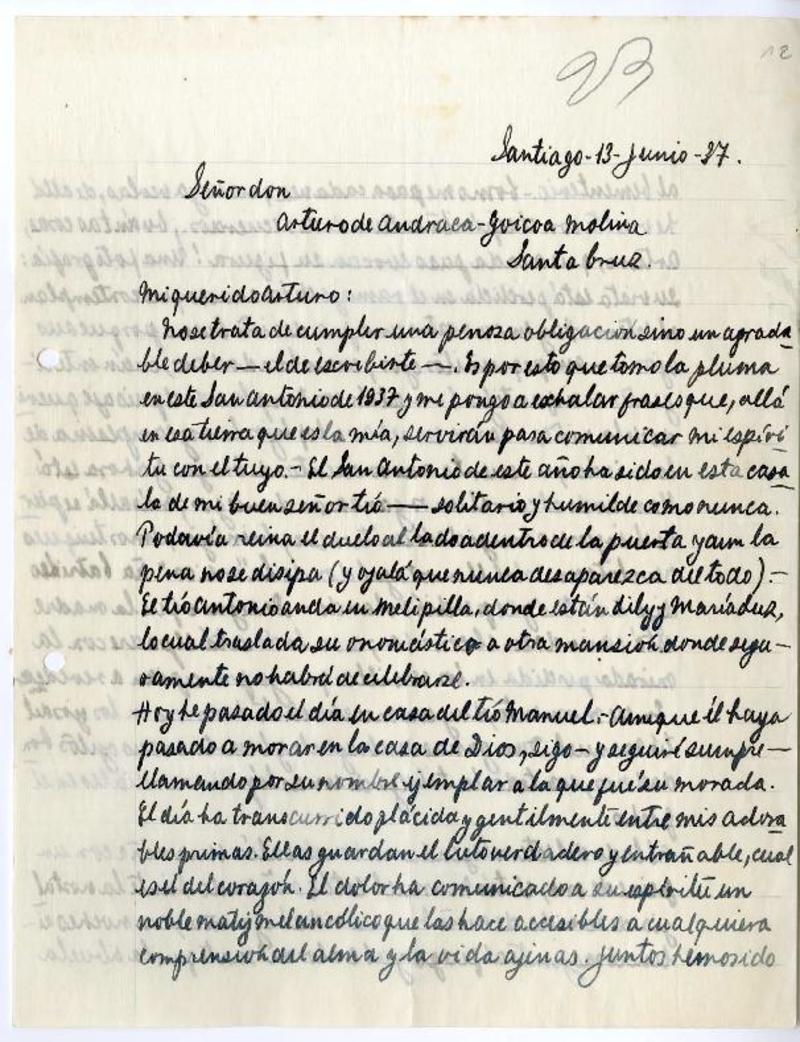 23
12
Santiago-13-Junio-37.
Señor don
Arturo de Andraca-Goicoa Molina
Santa Cruz.
Mi querido Arturo:
No se trata de cumplir una penosa obligación sino un agrada
ble deber — el de escribirte —. Es por esto que tomo la pluma
en este San Antonio de 1937 y me pongo a exhalar frases que, allá
en esa tierra que es la mía, servirán para comunicar mi espíri
tu con el tuyo.- El San Antonio de este año ha sido en esta casa
la de mi buen señor tió — solitario y humilde como nunca.
Todavía reina el duelo al lado adentro de la puerta y aun la
pena no se disipa (y ojalá que nunca desaparezca del todo).-
El tió Antonio anda en Melipilla, donde están Lily y María Luz,
lo cual traslada su onomástico a otra mansión donde segu-
ramente no habrá de celebrarse.
Hoy he pasado el día en casa del tió Manuel.- Aunque él haya
pasado a morar en la casa de Dios, sigo - y seguiré siempre -
llamando por su nombre ejemplar a la que fué su morada.
El día ha transcurrido plácida y gentilmente entre mis adora
bles primas. Ellas guardan el luto verdadero y entrañable, cual
es el del corazón. El dolor ha comunicado a su espíritu un
noble matiz melancólico que las hace accesibles a cualquiera
comprensión del alma y la vida ajenas. Juntos hemos ido